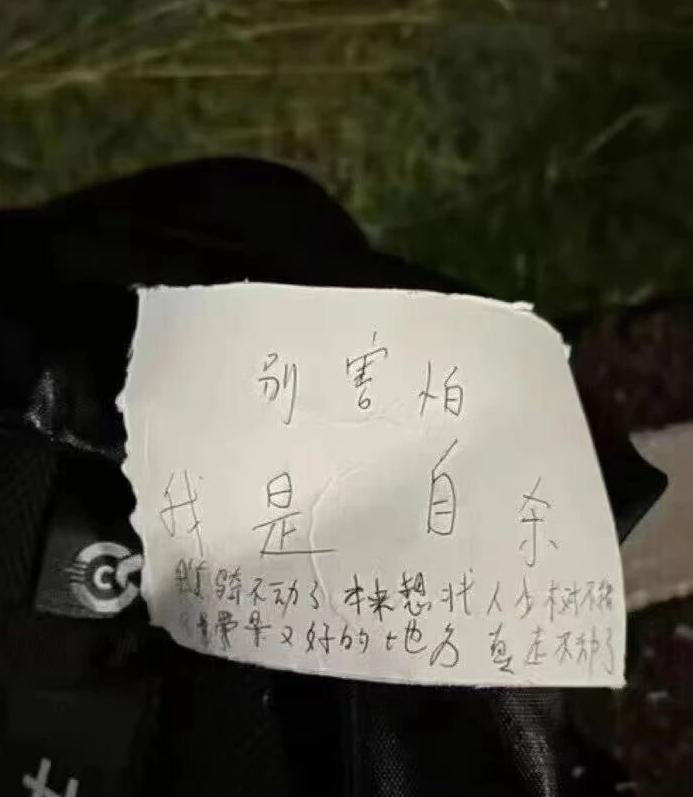 别害怕
我是 自杀
骑不动了 本来想找人少树不错
风景又好的地方 真走不动了